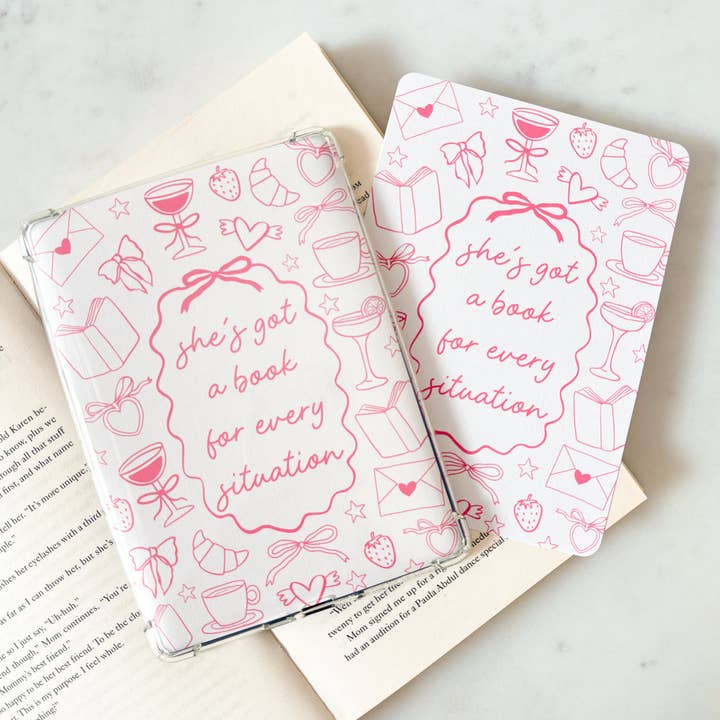 she's got
a book
for every
situation
she's got
a book
for every
situation
old Karen be-
know, plus we
rough all that stuff
first, and what name
tell her. "It's more unique."
ple."
shes her eyelashes with a third
as far as I can throw her, but she's
so I just say, "Uh-huh."
end though," Mom continues. "You're
Mommy's best friend."
so happy to be her best friend. To be the clo
is. This is my purpose. I feel whole.
thing!"
"Well
twenty to get her the
Mom signed me up for a
had an audition for a Paula Abdul dance special